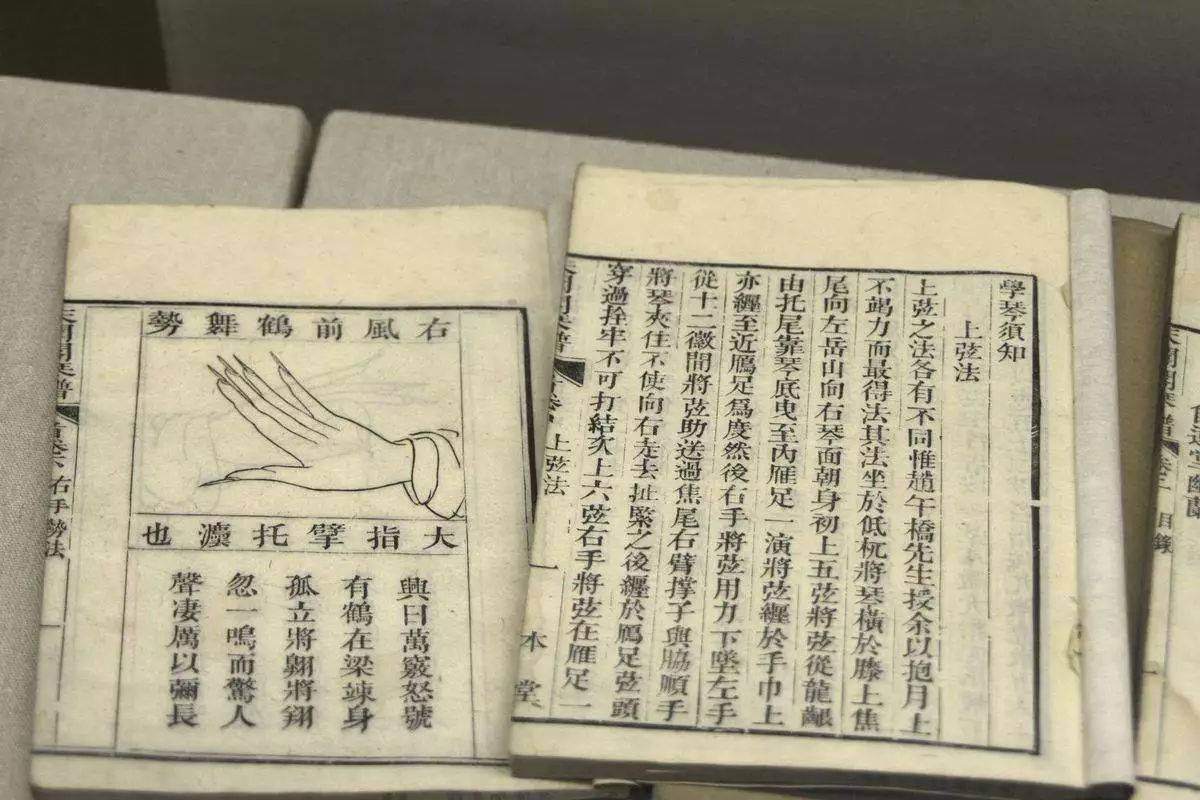 幽蘭
目錄
學琴須知
上弦法
上弦之法各有不同惟趙午橋先生授余以抱月上
不竭力而最得法其法坐於低杌將琴橫於膝上焦
尾向左岳山向右琴面朝身初上五弦將弦從龍齦
由托尾靠琴底曳至內雁足一演將弦纏於手巾上
亦纏至近鴈足爲度然後右手將弦用力下墜左手
從十二徽間將弦助送過焦尾右臂撐子與脇順手
將琴夾住不使向右走去扯緊之後纏於鴈足弦頭
穿過拴牢不可打結次上六弦右手將弦在雁足一
上弦法 一 本堂
右風前鶴舞勢
大指擘托也
興曰萬竅怒號
有鶴在梁竦身
孤立將翱將翔
忽一鳴而驚人
聲凄厲以彌長
右手勢法 一